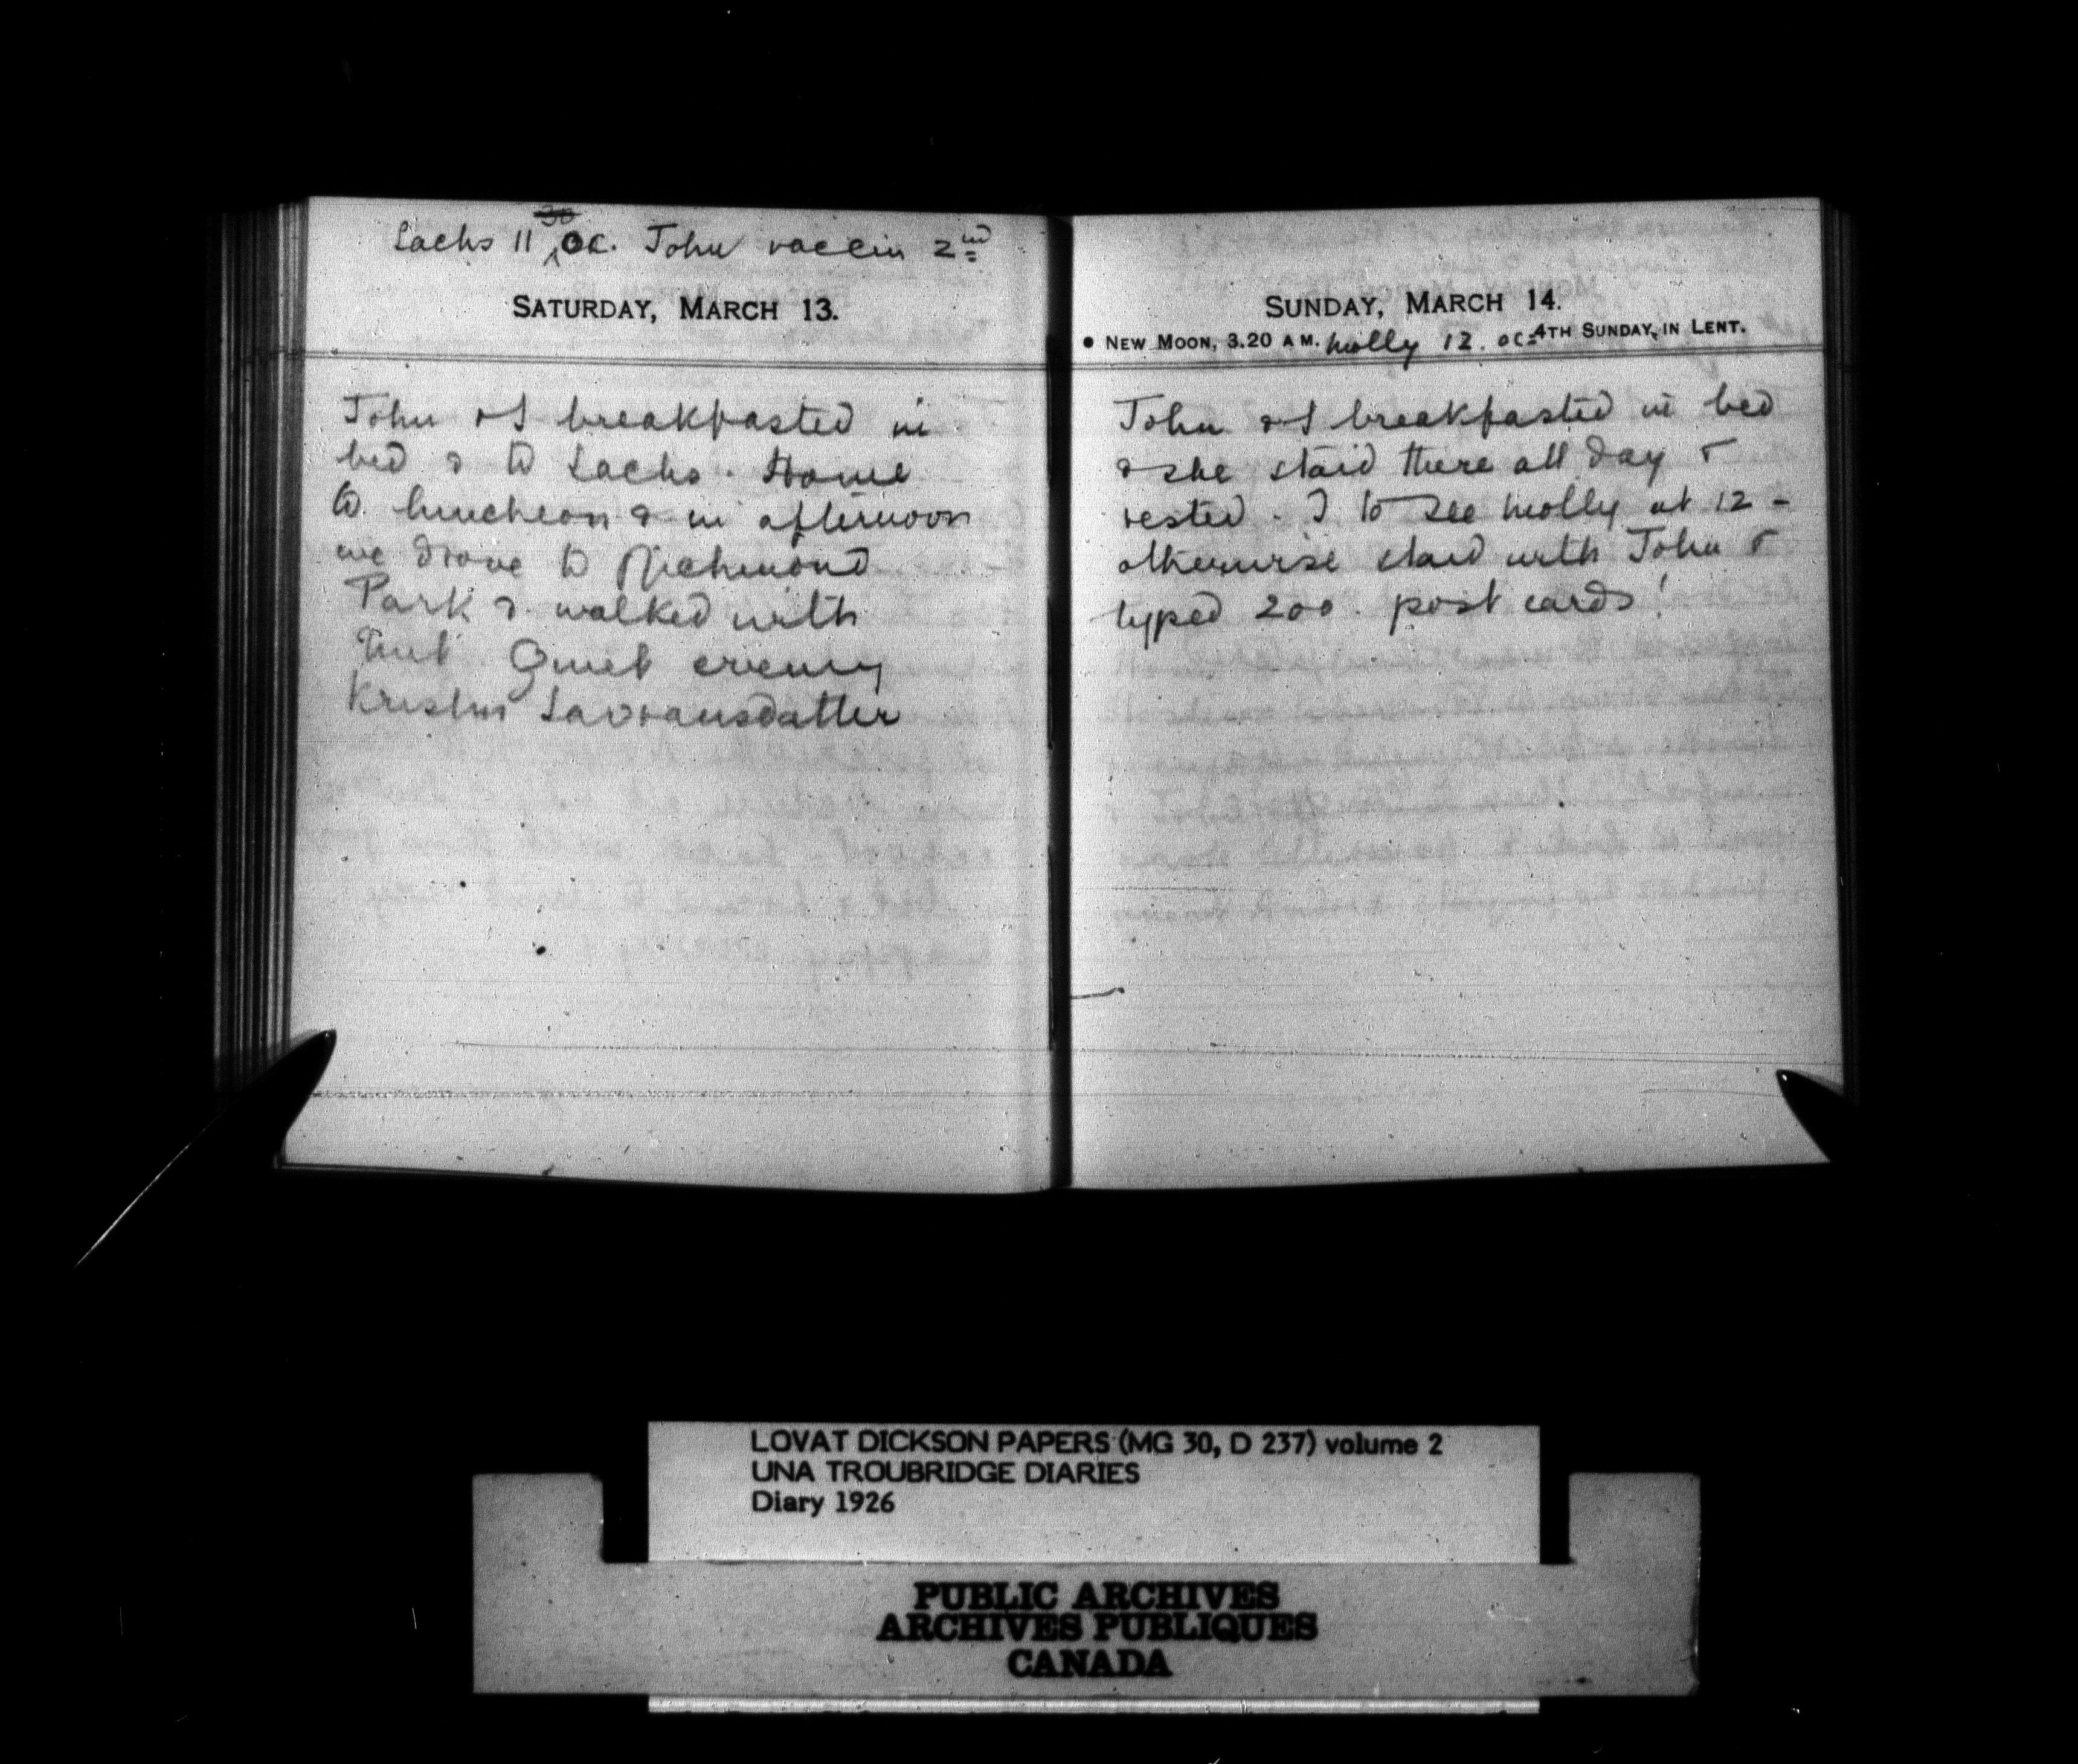 Sachs 11 30 oc. John vaccin 2nd
SATURDAY, MARCH 13.
John & I breakfasted in
bed & to Sachs. Home
to luncheon & in afternoon
we drove to Richmond
Park & walked with
Quiet evening
Kristin Lavransdatter
SUNDAY, MARCH 14.
• NEW MOON, 3.20 A M. Molly 12. oc- 4TH SUNDAY, IN LENT.
John & I breakfasted in bed
& she staid there all day &
rested. I to see Molly at 12 -
otherwise staid with John &
typed 200. post cards!
LOVAT DICKSON PAPERS (MG 30, D 237) volume 2
UNA TROUBRIDGE DIARIES
Diary 1926
PUBLIC ARCHIVES
ARCHIVES PUBLIQUES
CANADA